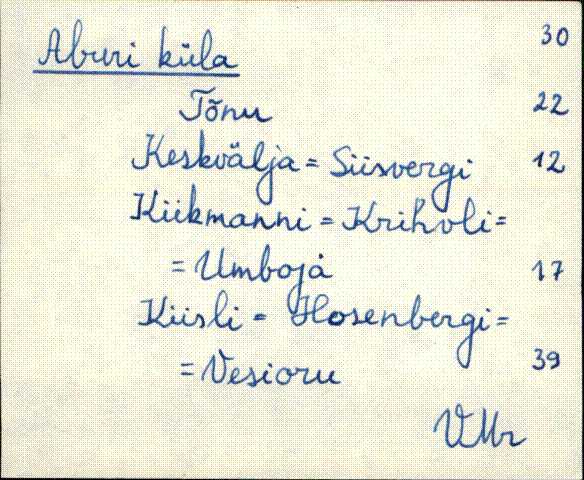 Aburi küla 30
Tõnu 22
Keskvälja = Siisvergi 12
Kiikmanni = Krihvli =
= Umboja 17
Kiisli = Hosenbergi =
= Vesioru 39
VMr